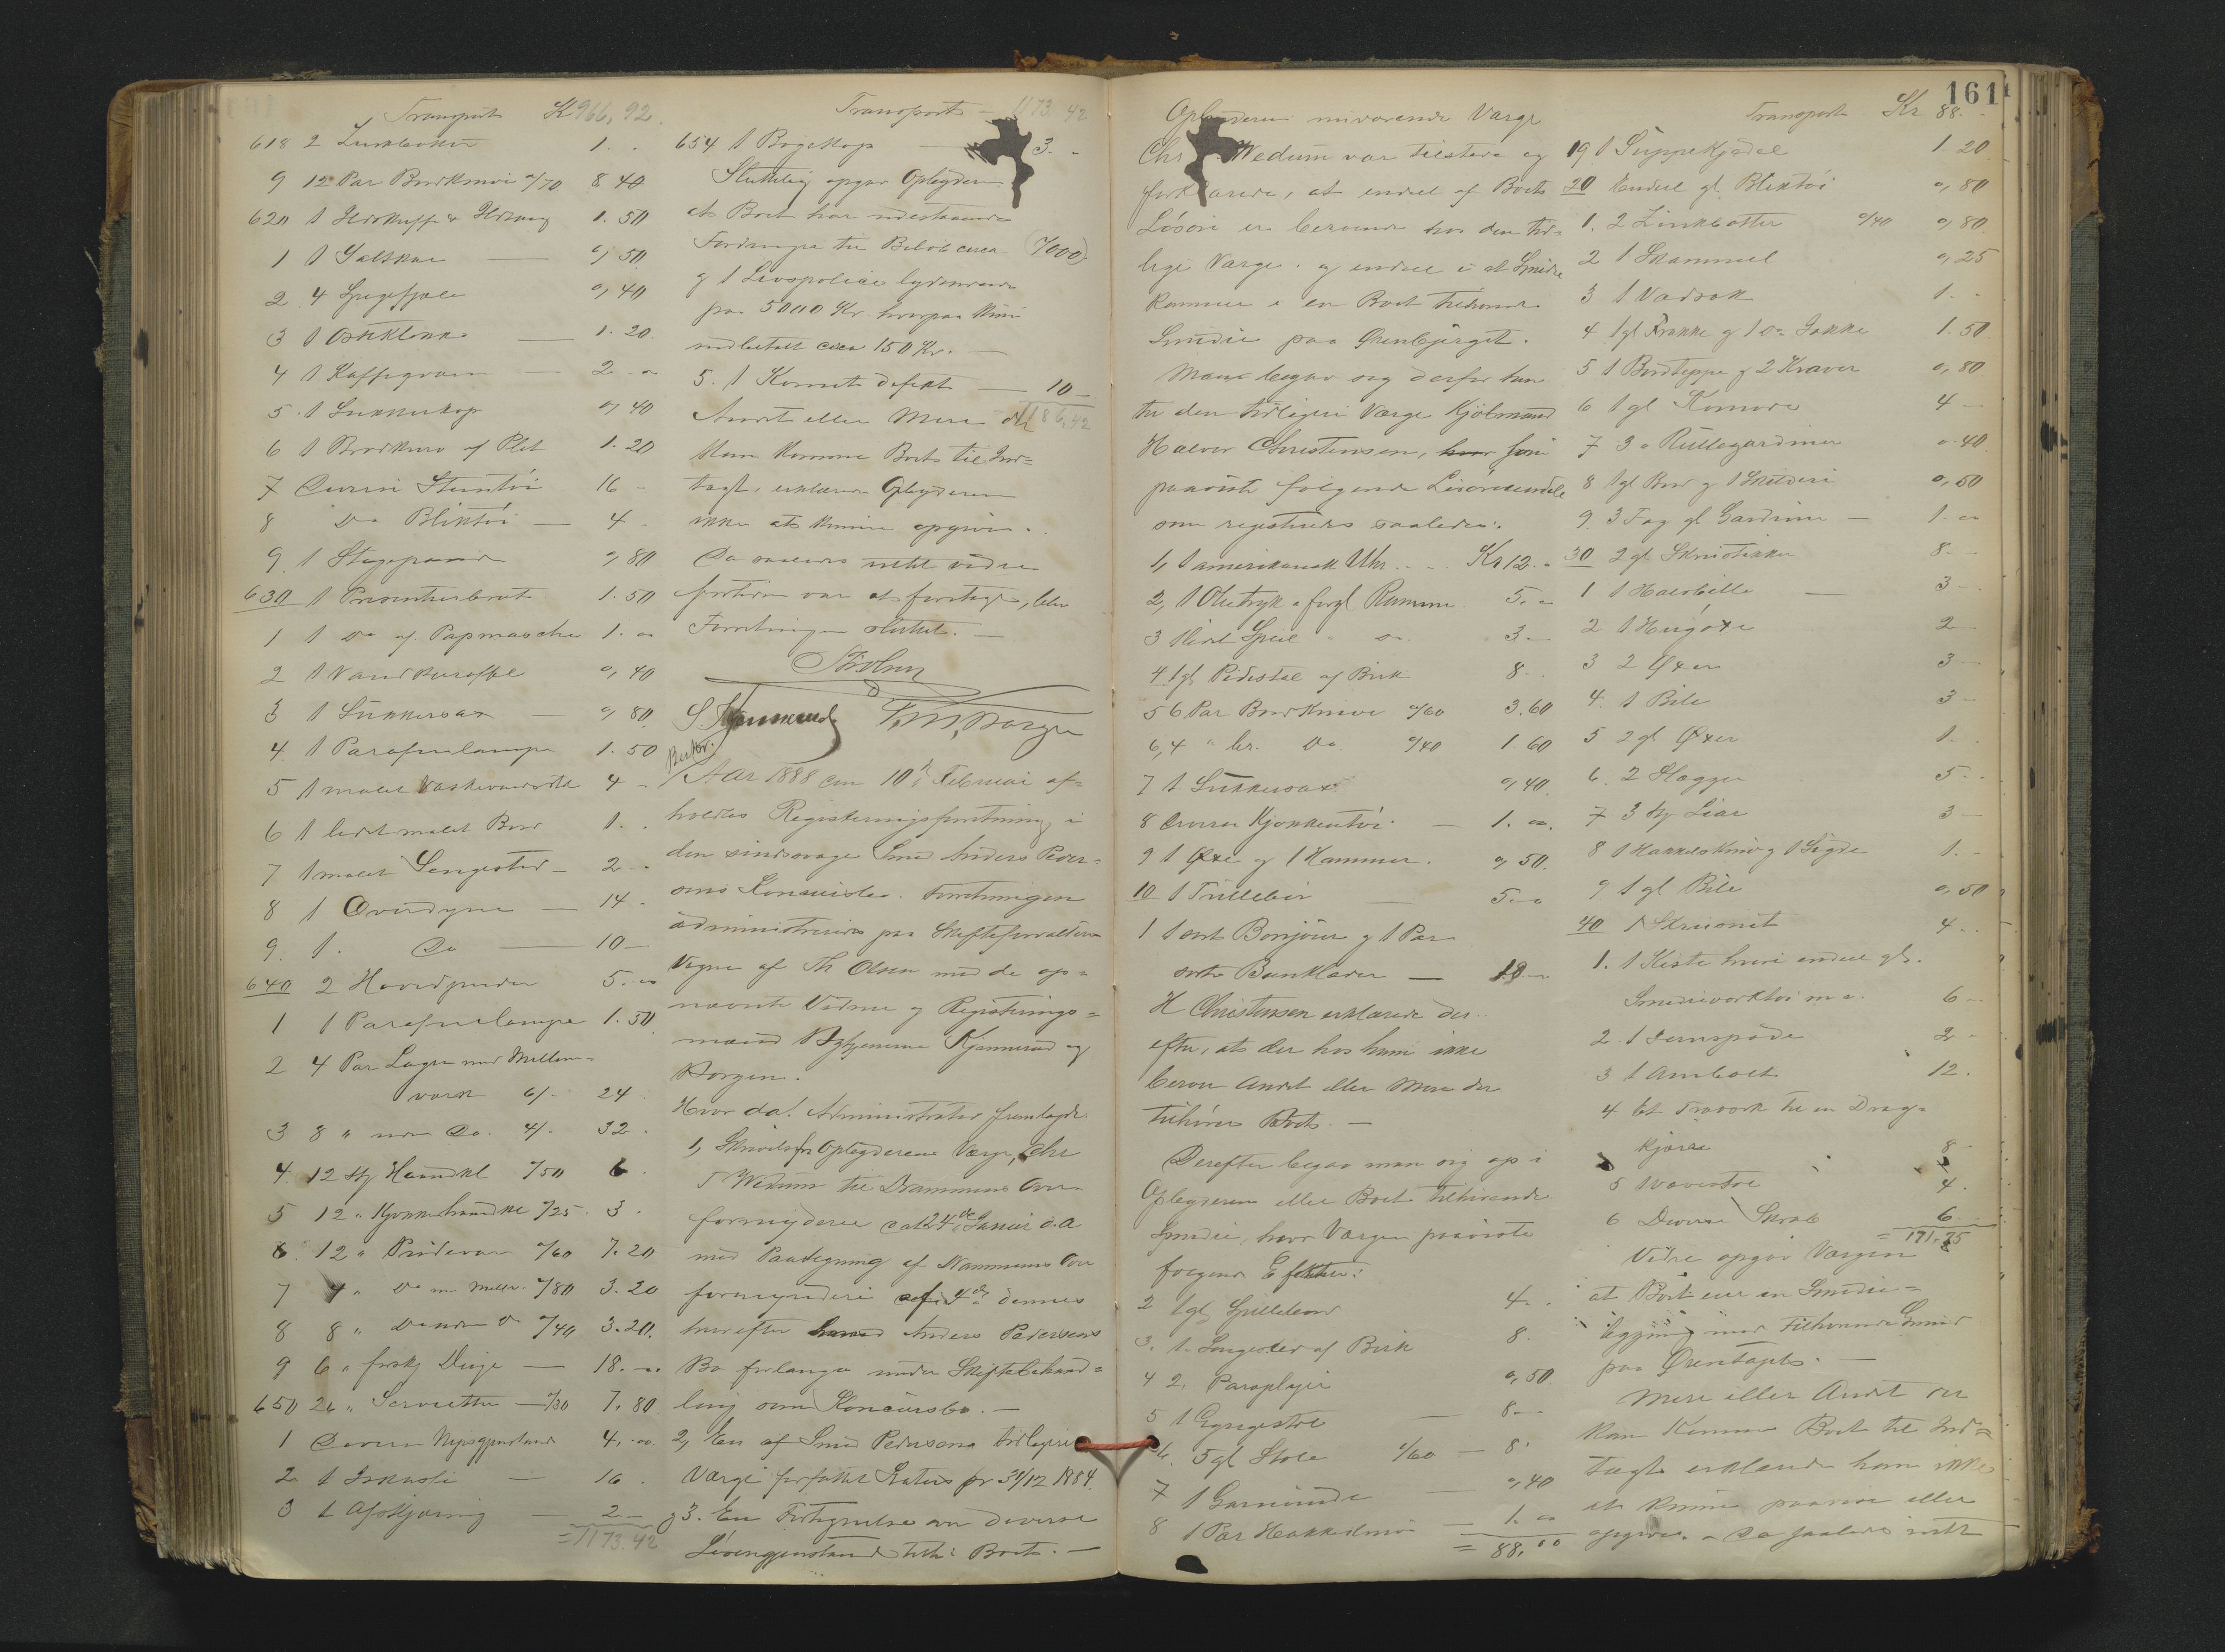 Transport Kr 966,92.
618 2 Zinkbøtter 1. -
9 12 Par Bordknive a/70 8 40
620 1 Ildskuffe & Ildtang 1. 50
1 1 Saltkar — 0,50
2 4 0,40
3 1 Ostekloke — 1. 20
4 1 Kaffegrann — 2 - "
5 1 Sukkerkop 0,40
6 1 Brødkurv af Plet 1. 20
7 Diverse Stentøi 16 -
8 Do Bliktøi — 4 -
9 1 Stegepande 0,80
630 1 Presenterbret 1. 50
1 1 Do af Papmasche 1. "
2 1 Vandkaraffel 0,40
3 1 Sukkersax — 0,80
4 1 Parafinlampe 1. 50
5 1 malet 4 -
6 1 lidet malet Bord 1. .
7 1 malet Sengested — 2 -
8 1 Overdyne — 14 -
9. 1. Do — 10 —
640 2 Hovedpuder 5. "
1 1 Parafinlampe 1. 50
2 4 Par Lagen med Mellem=
værk 6/- 24
3 8 " uden Do. 4/- 32.
4. 12 Stk Haandkl /50 6.
5 12 " Kjøkkenhaandkl /25. 3.
6. 12 " Pudevar /60 7. 20
7 4 " Do m. Mellv. /80 3. 20
8 8 " Do uden Do /40 3. 20.
9 6 " forskj Duge — 18. -
650 26 " Servietter — /30 7. 80
1 Diverse 4. "
2 1 — 16.
3 1 — 2 —
= 1173.42
Transport — 1173. 42
654 1 Bogeskap — 3. "
Sluttelig opgav Oplyderen
at Boet har udestaaende
Fordringer til Beløb circa (7000)
og 1 Livspolice lydende
paa 5000 Kr. hvorpaa kun
indbetalt circa 150 Kr. —
5. 1 Kornet defekt — 10 —
Andet eller Mere der 1186,42
kan komme Boet til Ind=
tægt, erklærer Oplyderen
ikke at kunne opgive.
Da saaledes intet videre
fortiden var at foretage, blev
Forretningen sluttet. —
Th Olsen
S. Kjennerud T. M. Borgen
Beskr.
Aar 1888 den 10de Februar af=
holdtes Registreringsforretning i
den sindssvage Smed Anders Peder=
sens Konkursbo. Forretningen
administreredes paa Skifteforvalterens
Vegne af Th Olsen med de op=
nævnte Vidner og Registrerings=
mænd Kjennerud og
Borgen.
Hvor da! Administrator fremlagde:
1, Skrivelse fra Oplyderens Værge, Chr
Wedum til Drammens Over=
formynderie dat 24de Januar d.A
med Paategning af Drammens Over
formynderi af 4de dennes
hvorefter Anders Pedersens
Bo forlanges under Skiftebehand=
ling som Konkursbo. —
2, En af Smed Pedersens tidligere
Værge forfattet Status pr 31/12 1884.
og 3. En Fortegnelse over diverse
Løsøregjenstande tilh: Boet. —
161
Oplyderens nuværende Værge
Chr Wedum var tilstede og
forklarede, at endel af Boets
Løsøre er beroende hos den tid=
lige Værge og endel i et Smie
kammer i en Boet tilhørende
Smidie paa Grenbjerget.
Man begav sig derfor hen
til den tidligere Værge Kjøbmand
Halvor Christensen, som
paaviste følgende Løsøreeiendele
som registreres saaledes:
1, 1 amerikansk Uhr . . . . Kr 12. "
2, 1 Olietryk i forgl Ramme 5. "
3 1 lidet Speil " Do. 3 —
4 1 gl Pidestal af Birk 8. .
5 6 Par Bordknive a/60 3. 60
6, 4 " Do. a/40 1. 60
7 1 Sukkersax 0,40.
8 Diverse Kjøkkentøi — 1. ".
9 1 Øxe og 1 Hammer. 0,50.
10 1 Trillebør — 5. "
1 1 sort Bonjour og 1 Par
sorte Benklæder — 18 —
H Christensen erklærede der=
efter, at der hos ham ikke
beror Andet eller Mere der
tilhører Boet. —
Derefter begav man sig op i
Oplyderens eller Boets tilhørende
Smidie, hvor Værgen paaviste
følgende Effekter:
2 1 gl 4. .
3. 1 Sengested af Birk 8.
4 2. Paraplyer 0,50
5 1 Gyngestol — 8. -
6. 5 gl Stole 1/60 — 8.
7 1 — 0,40
8 1 Par — 1. "
= 88,00
Transport Kr 88. -
19 1 Suppekjedel 1 20
20 Endel gl Bliktøi 0,80
1. 2 Zinkbøtter a/40 0,80
2 1 Skammel 0,25
3 1 Vadsæk 1. -
4 1 gl Frakke og 1 Do Jakke 1. 50
5 1 Bordteppe og 2 Kraver 0,80
6 1 gl Komode 4 —
7 3 " Rullegardiner 0. 40
8 1 gl Bord og 1 Skilderi 0,50
9. 3 Fag gl Gardiner — 1. "
30 2 gl Skruestikker 8. -
1 1 — 3 -
2 1 2 —
3 2 Øxer 3 —
4. 1 Bile 3 —
5 2 gl Øxer 1. .
6. 2 Slægger 5. -
7 3 Stk Liaer 3 —
8 1 Hakkelskniv og 1 Sigde 1. -
9 1 gl Bile 0,50
40 1 Skruesnit 4. .
1. 1 Kiste hvori endel gl.
Smedieverktøi m. v. 6 —
2. 1 Jernspade 2 -
3 1 Ambolt 12.
4 Et Træværk til en Drag=
kjærre 8 —
5 1 Vævstol 4.
6 Diverse Skrab 6.
= 171,75
Videre opgav Værgen
at Boet eier en Smidie=
bygning med tilhørende Grund
paa
Mere eller Andet der
kan komme Boet til Ind=
tægt erklærede han ikke
at kunne paavise eller
opgive. — Da saaledes intet